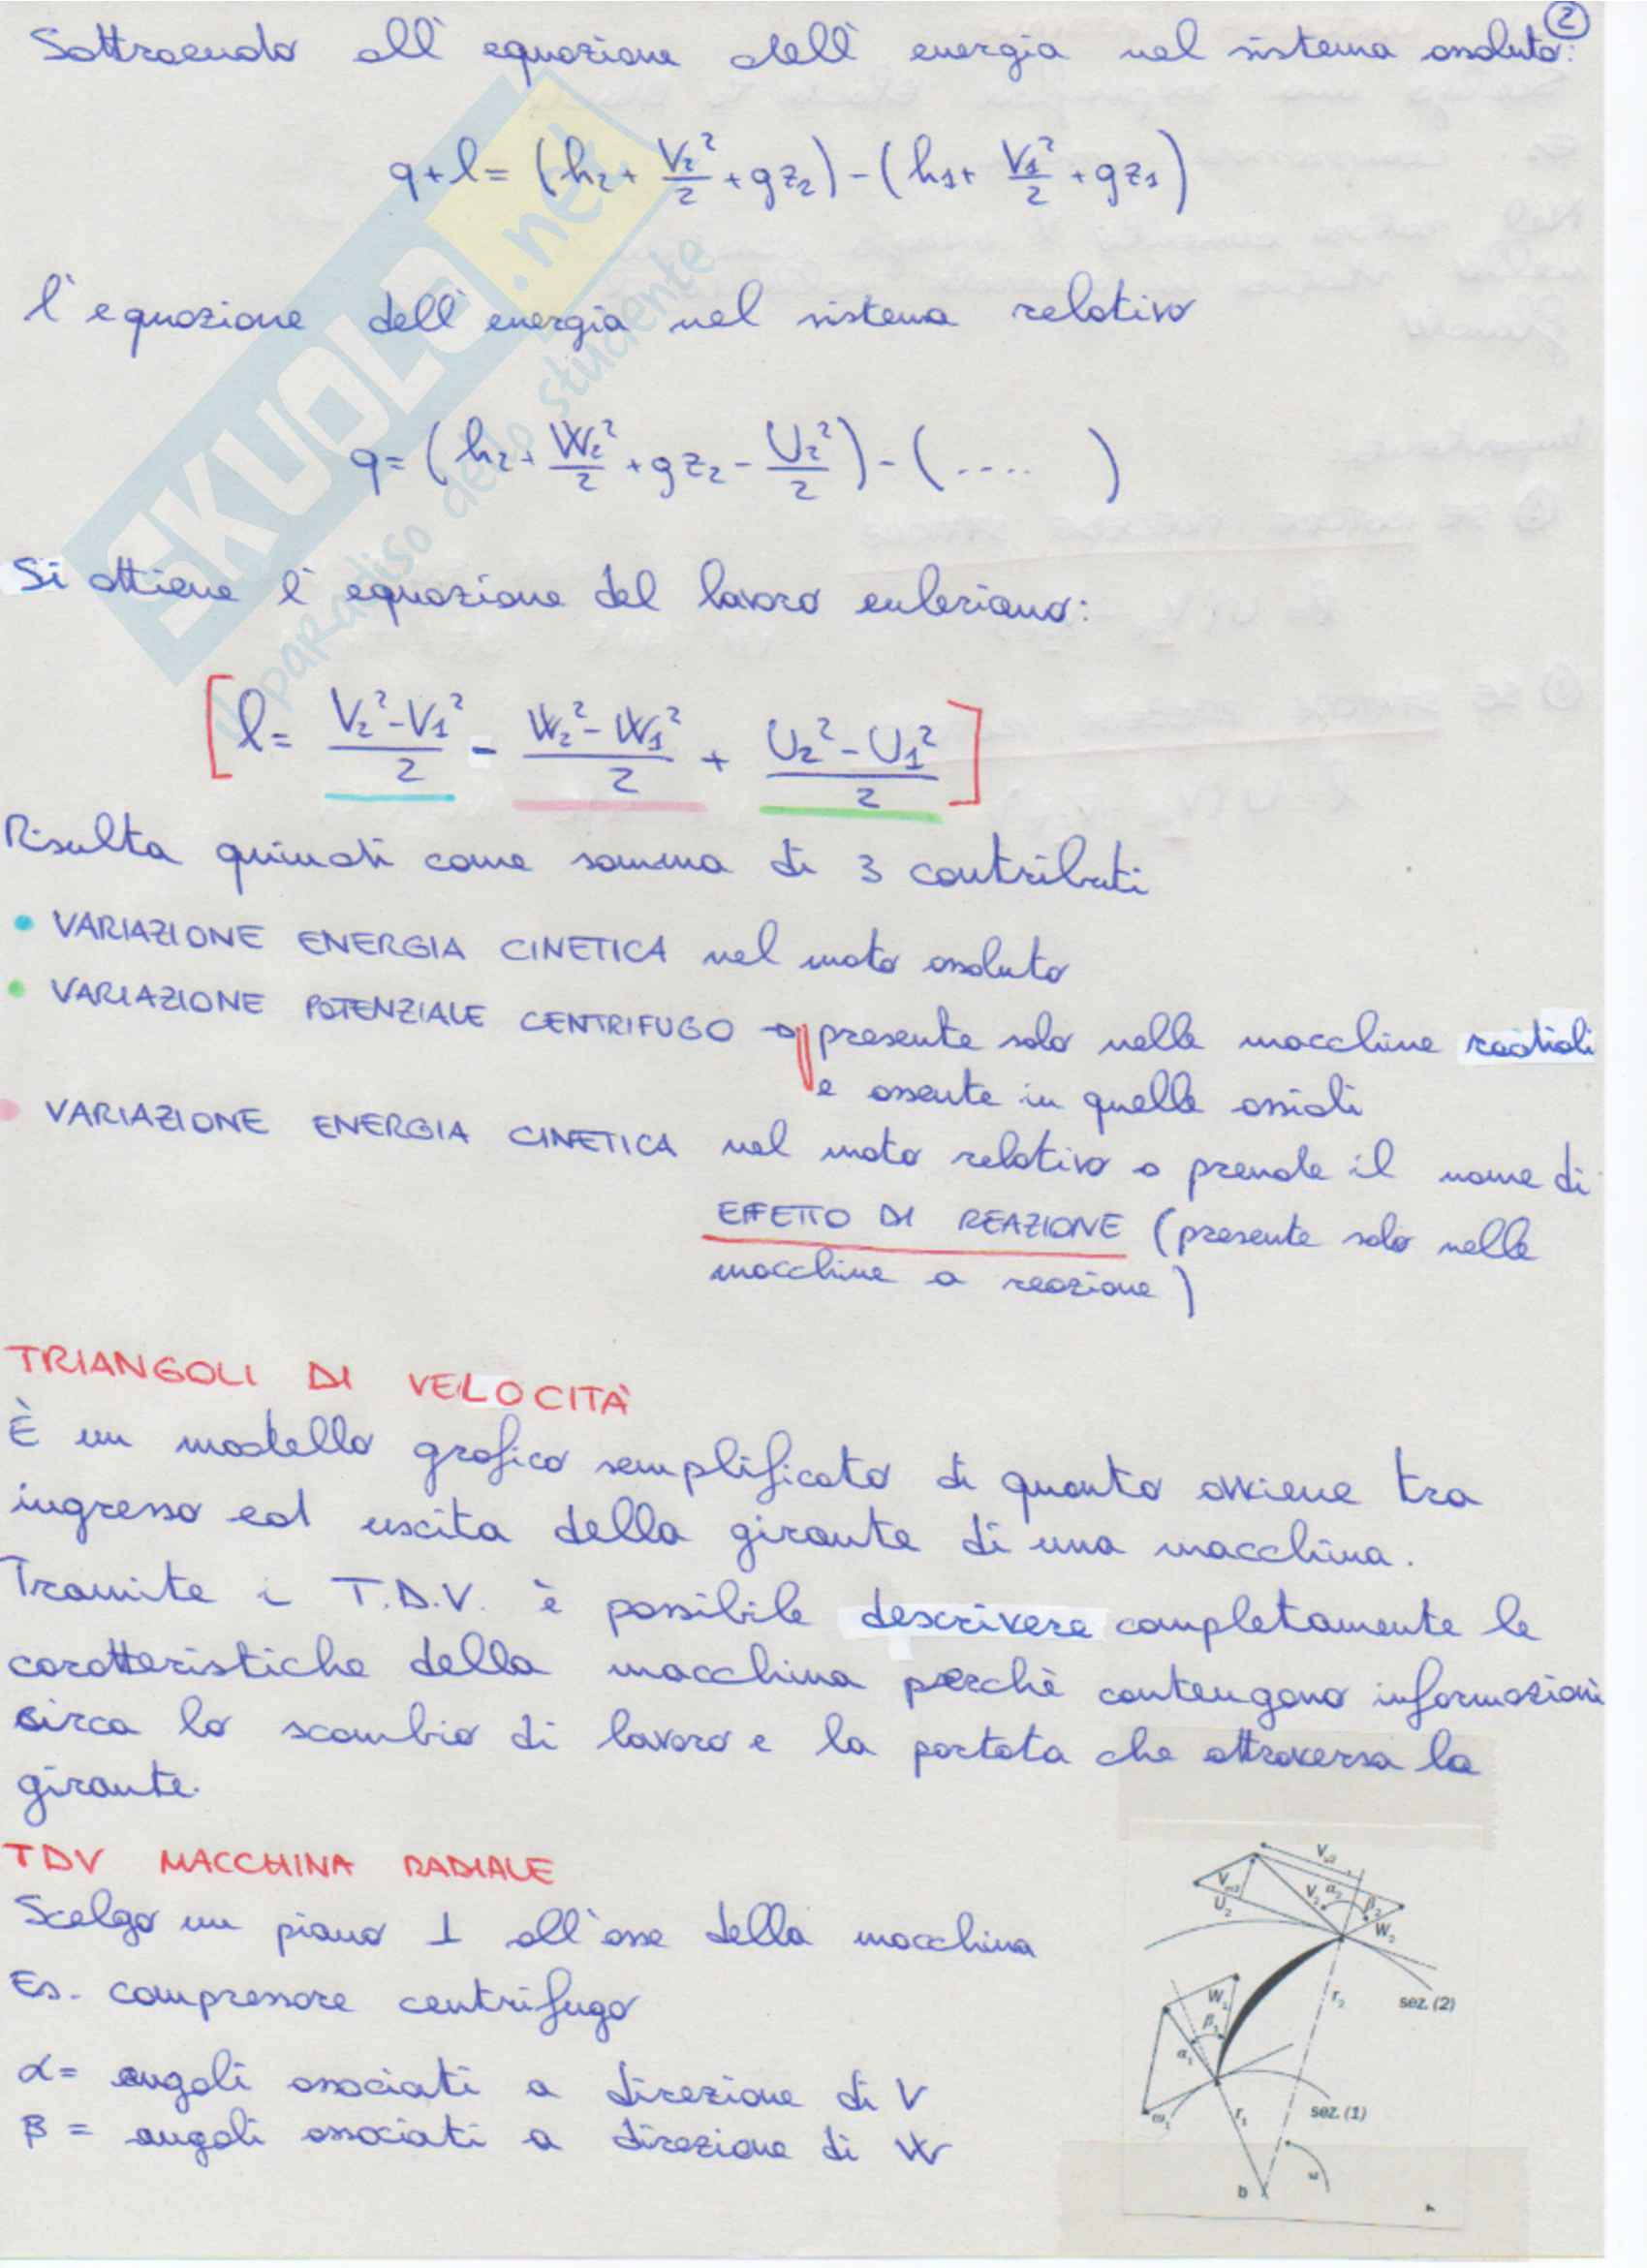 2
Sottraendo all'equazione dell'energia nel sistema assoluto:
q+l= (h₂+ V₂²/2 +gz₂)-(h₁+ V₁²/2 +gz₁)
l'equazione dell'energia nel sistema relativo
q= (h₂+ W₂²/2 +gz₂- U₂²/2)-(.... )
Si ottiene l'equazione del lavoro euleriano:
[l= V₂²-V₁²/2 - W₂²-W₁²/2 + U₂²-U₁²/2]
Risulta quindi come somma di 3 contributi
• VARIAZIONE ENERGIA CINETICA nel moto assoluto
• VARIAZIONE POTENZIALE CENTRIFUGO → presente solo nelle macchine radiali
e assente in quelle assiali
• VARIAZIONE ENERGIA CINETICA nel moto relativo o prende il nome di
EFFETTO DI REAZIONE (presente solo nelle
macchine a reazione)
TRIANGOLI DI VELOCITÀ
È un modello grafico semplificato di quanto avviene tra
ingresso ed uscita della girante di una macchina.
Tramite i T.D.V. è possibile descrivere completamente le
caratteristiche della macchina perchè contengono informazioni
circa lo scambio di lavoro e la portata che attraversa la
girante.
TDV MACCHINA RADIALE
Scelgo un piano ⊥ all'asse della macchina
Es. compressore centrifugo
α= angoli associati a direzione di V
β = angoli associati a direzione di W
V₂ α₂ β₂
U₂ W₂
W₁ r₂ sez. (2)
β₁
α₁
ω₁ r₁ sez. (1)
b ω
SKUOLA.net
il paradiso dello studente